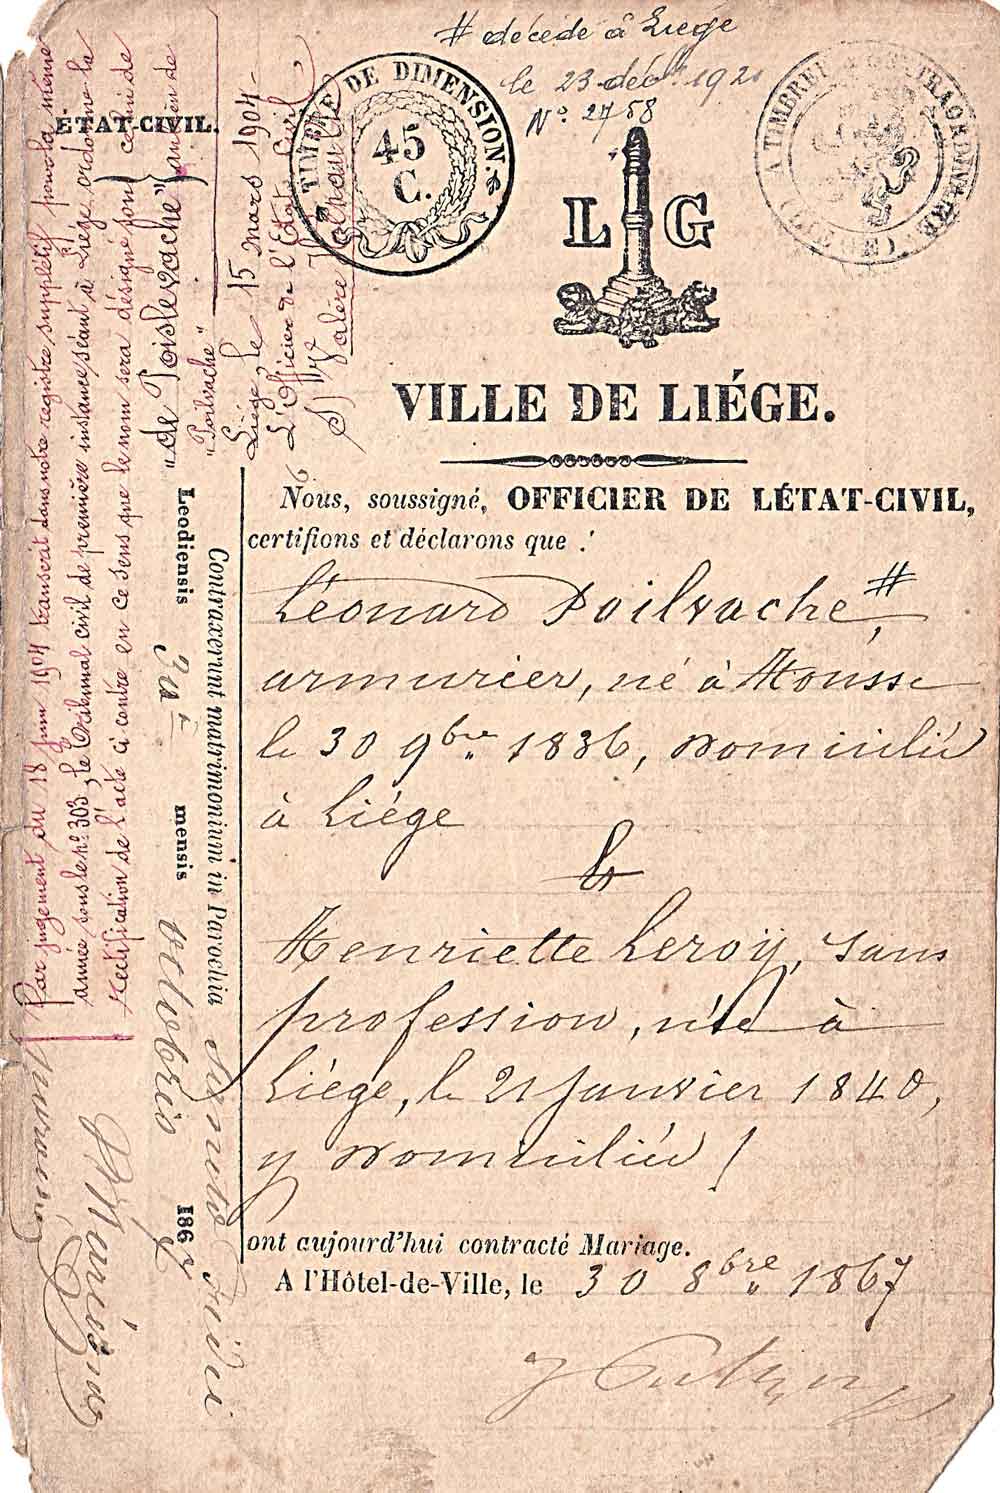 # décédé à Liége
le 23 déc. 192
N° 2758
ÉTAT-CIVIL.
TIMBRE DE DIMENSION.
45
C.
A TIMBRER EXTRAORDINAIRE
(LIÉGE)
L G
VILLE DE LIÉGE.
Nous, soussigné, OFFICIER DE L'ÉTAT-CIVIL,
certifions et déclarons que :
Léonard Poilvache #,
armurier, né à Housse
le 30 9bre 1836, domicilié
à Liége
&
Henriette Leroÿ, sans
profession, née à
Liége, le 21 Janvier 1840,
y domiciliée /
ont aujourd'hui contracté Mariage.
A l'Hôtel-de-Ville, le 30 8bre 1867
Contraxerunt matrimonium in Parochia
Leodiensis 30â mensis octobris 1867
Par jugement du 18 juin 1904 transcrit dans notre registre supplétif pour la même
année sous le n° 303, le Tribunal civil de première instance séant à Liége ordonne la
rectification de l'acte ci contre en ce sens que le nom sera désigné par celui de
"de Poislevache" au lieu de
"Poilvache"
Liége, le 15 mars 1904
L'Officier de l'Etat Civil,
Valère